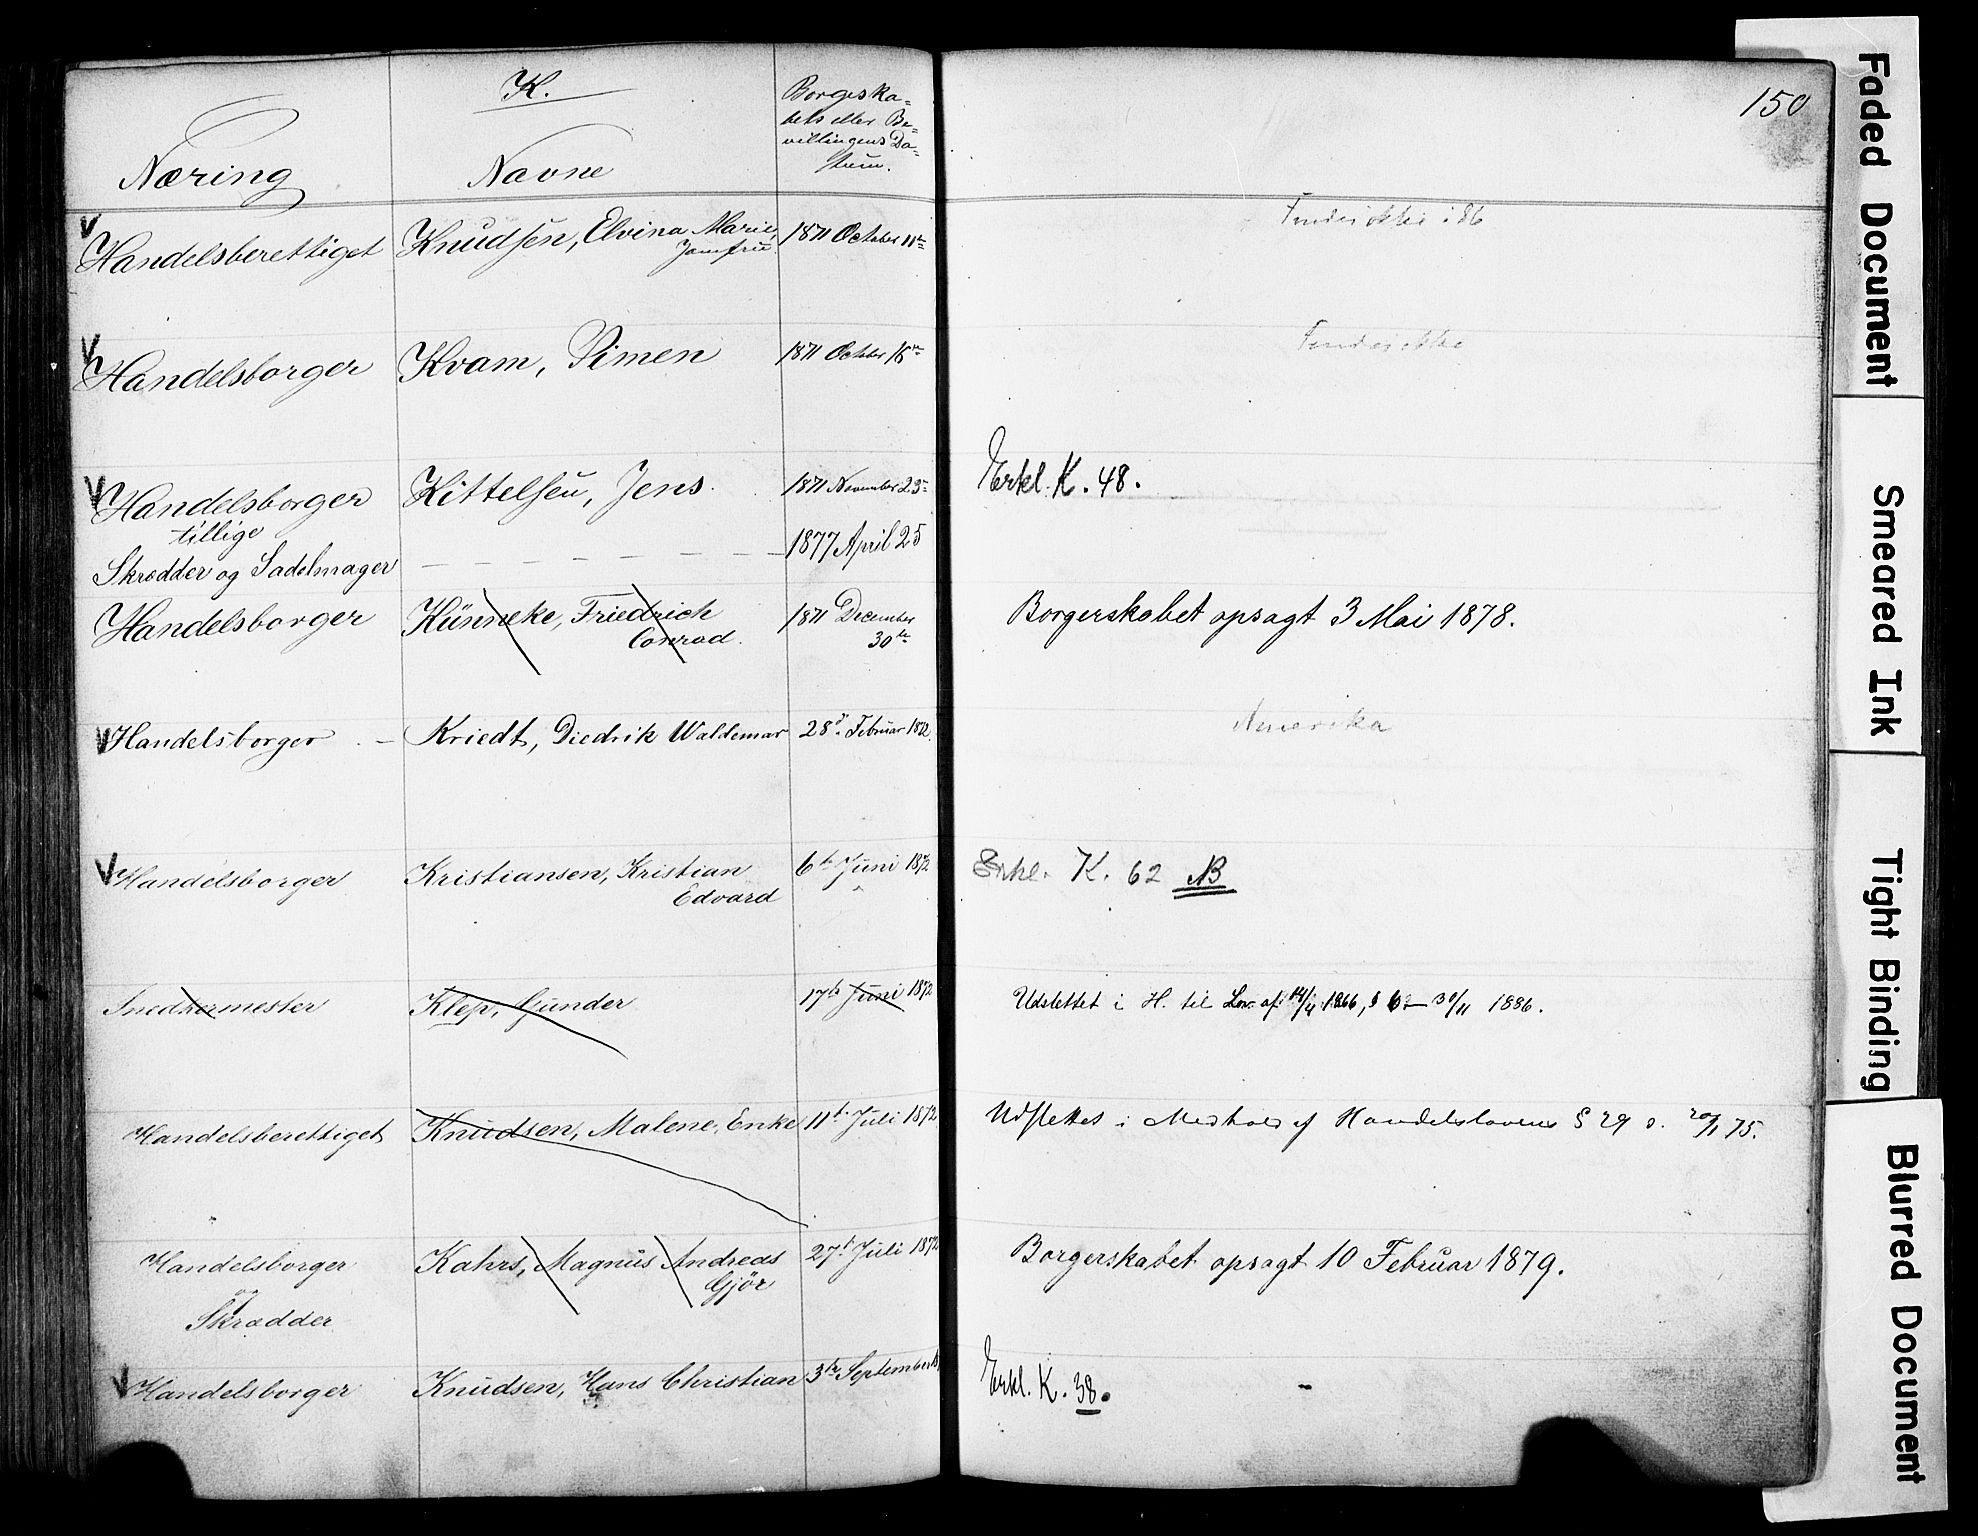 K.
150
Næring
Navne
Borgerska-
bets eller Be-
villingens Da-
tum.
V
Handelsberettiget
Knudsen, Elvina Marie,
Jomfru
1871 October 11te
Findes ikke i 86
V
Handelsborger
Kvam, Simen
1871 October 16te
Findes ikke
V
Handelsborger
Kittelsen, Jens.
1871 November 23
Erkl. K. 48.
tillige
Skrædder og Sadelmager
— — — — — —
1877 April 25
Handelsborger
Künneke, Friedrich
Conrad.
1871 December
30te
Borgerskabet opsagt 3 Mai 1878.
V
Handelsborger —
Kriedt, Diedrik Waldemar
28d. Februar 1872.
Amerika
V
Handelsborger
Kristiansen, Kristian
Edvard
6te Juni 1872
Erkl. K. 62 NB
Snedkermester
Klep, Gunder
17de Juni 1872
Udslettet i H. til Lov af 14/4 1866, § 6 — 30/11 1886.
Handelsberettiget
Knudsen, Malene, Enke
11t. Juli 1872
Udslettes i Medhold af Handelslovens § 29 d. 20/1 75.
Handelsborger
og
Skrædder
Kahrs, Magnus Andreas
Gjör
27d Juli 1872
Borgerskabet opsagt 10 Februar 1879.
V
Handelsborger
Knudsen, Hans Christian
3die September
Erkl. K. 38.
Faded Document
Smeared Ink
Tight Binding
Blurred Document